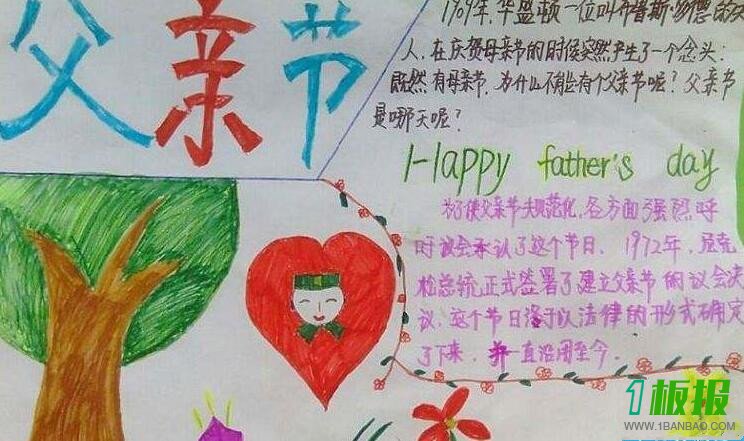 父亲节
1909年,华盛顿一位叫布鲁斯·多德的夫
人,在庆贺母亲节的时候突然产生了一个念头:
既然有母亲节,为什么不能有个父亲节呢?父亲节
是哪天呢?
Happy father's day
为了使父亲节规范化,各方面强烈呼
吁议会承认了这个节日。1972年,尼克
松总统正式签署了建立父亲节的议会决
议。这个节日终于以法律的形式确定
了下来,并一直沿用至今。
1板报
WWW.1BANBAO.COM